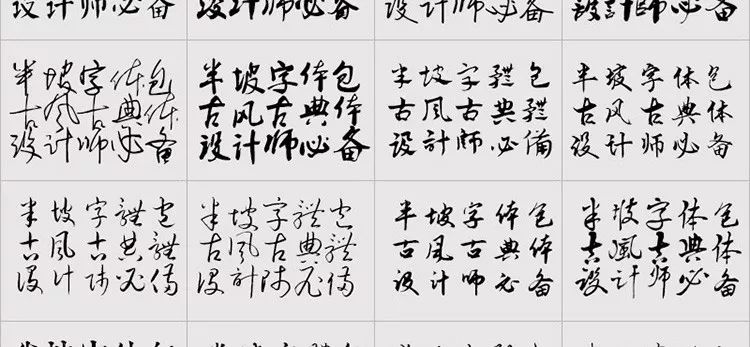 设计师必备
设计师必备
设计师必备
设计师必备
半坡字体包
古风古典体
设计师必备
半坡字体包
古风古典体
设计师必备
半坡字體包
古風古典體
設計師必備
半坡字体包
古风古典体
设计师必备
半坡字體包
古風古典體
設計師必備
半坡字體包
古風古典體
設計師必備
半坡字体包
古风古典体
设计师必备
半坡字体包
古風古典体
设计师必备